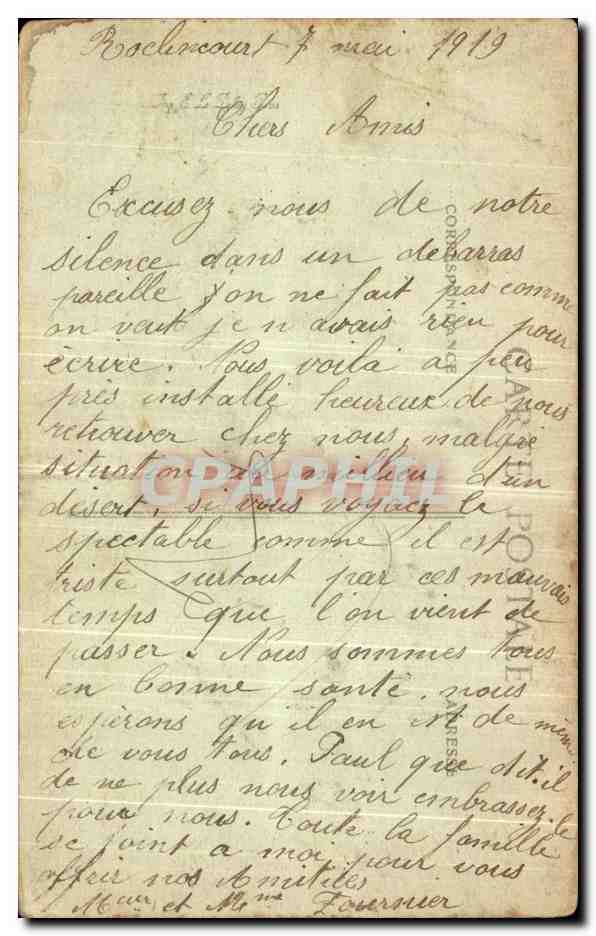 Roclincourt 7 mai 1919
Chers Amis
Excusez nous de notre
silence dans un debarras
pareille on ne fait pas comme
on veut je n avais rien pour
écrire. Nous voilà a peu
près installé heureux de nous
retrouver chez nous, malgré
situation au millieu d'un
disert, si vous voyiez le
spectable comme il est
triste surtout par ces mauvais
temps que l'on vient de
passer. Nous sommes tous
en bonne santé, nous
espèrons qu'il en est de même
de vous tous. Paul que dit.il
de ne plus nous voir embrassez.le
pour nous. Toute la famille
se joint a moi pour vous
offrir nos Amitiés
Mr et Mme Fournier
CORRESPONDANCE
CARTE POSTALE
ADRESSE
CPAPHIL